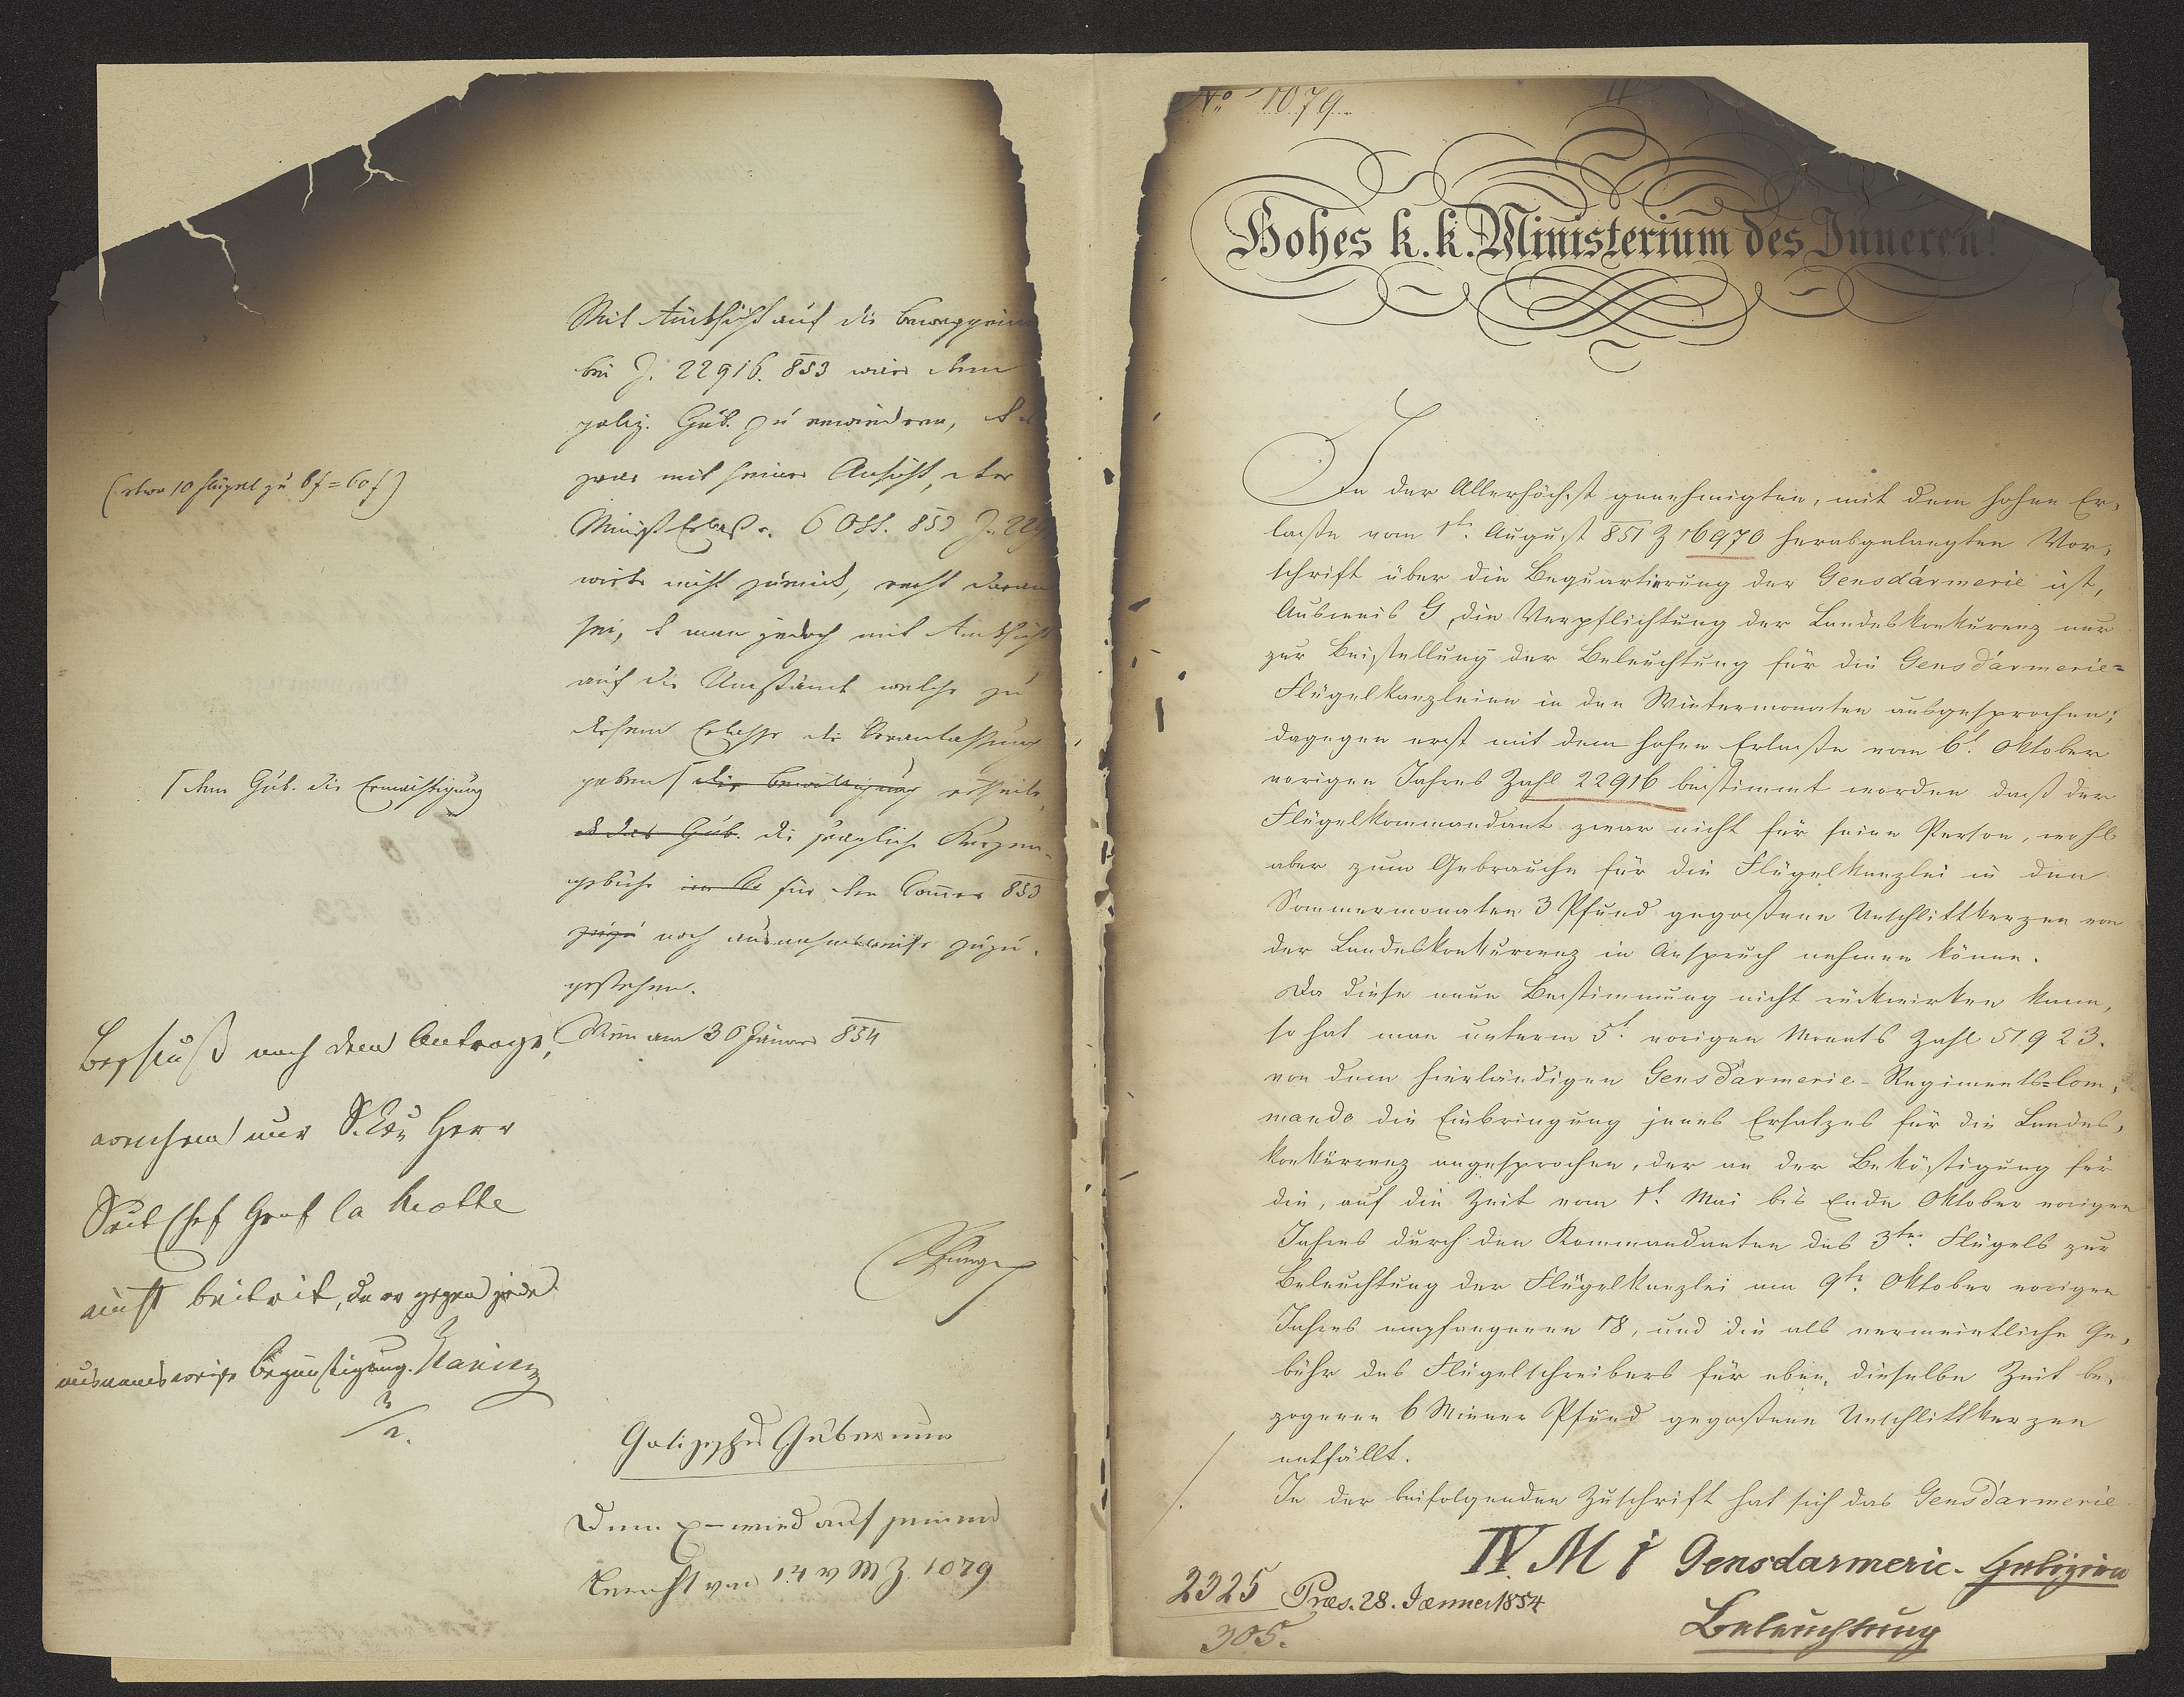 Mit Rücksicht auf die Beweggrün
bei Z. 22916. 853 wäre dem
galiz. Gub. zu erwiedern, daß
zwar mit seiner Ansicht, der
Minist Erlaß v. 6 Okt. 853 Z. 229
wirke nicht zurück, recht daran
sei, daß man jedoch mit Rücksicht
auf die Umstände welche zu
diesem Erlasse die Veranlassung
geben die Bewilligung ertheile,
das Gub. die fragliche Kerzen-
gebühr für den Sommer 853
noch ausnahmsweise zuzu-
gestehen.
Wien am 30 Jänner 854
(etwa 10 Flügel zu 6f = 60f)
dem Gub. die Ermächtigung
Beschluß nach dem Antrage,
welchem nur S. Exz Herr
Sect Chef Graf la Motte
nicht beitrit, da er gegen jede
ausnamsweise Begünstigung.
Galizisches Gubernium
Dem wird auf seinen
Bericht vom 14 v M Z. 1079
No 1079
Hohes k. k. Ministerium des Inneren!
In der Allerhöchst genehmigten, mit dem hohen Er-
laße vom 1t. August 851 Z 16970 herabgelangten Vor-
schrift über die Bequartierung der Gensdármerie ist,
Ausweis G, die Verpflichtung der Landeskonkurenz nur
zur Beistellung der Beleuchtung für die Gensdármerie-
Flügelkanzleien in den Wintermonaten ausgesprochen;
dagegen erst mit dem hohen Erlaße vom 6t. Oktober
vorigen Jahres Zahl 22916 bestimmt worden daß der
Flügelkommandant zwar nicht für seine Person, wohl
aber zum Gebrauche für die Flügelkanzlei in den
Sommermonaten 3 Pfund gegoßene Unschlittkerzen von
der Landeskonkurrenz in Anspruch nehmen könne.
Da diese neue Bestimmung nicht rückwirken kann,
so hat man unterm 5t. vorigen Monats Zahl 51923.
von dem hierländigen Gensdármerie-Regiments-Com-
mando die Einbringung jenes Ersatzes für die Landes-
konkurrenz angesprochen, der an der Beköstigung für
die, auf die Zeit vom 1t. Mai bis Ende Oktober vorigen
Jahres durch den Kommandanten des 3ten Flügels zur
Beleuchtung der Flügelkanzlei am 9ten Oktober vorigen
Jahres empfangenen 18, und die als vermeintliche Ge-
bühr des Flügelschreibers für eben dieselbe Zeit be-
zogenen 6 Wiener Pfund gegoßene Unschlittkerzen
entfällt.
In der beifolgenden Zuschrift hat sich das Gensdármerie
IV. M Gensdarmerie- Galizien
Beleuchtung
2325 Præs. 28. Jænner 1854
305.